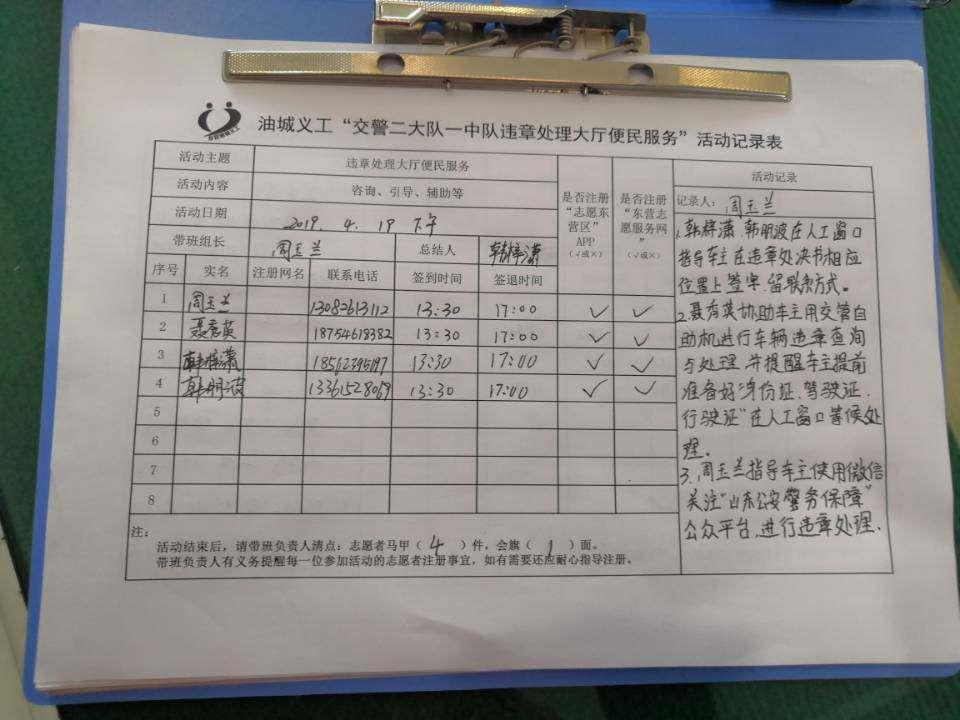 油城义工“交警二大队一中队违章处理大厅便民服务”活动记录表
活动主题 违章处理大厅便民服务
活动内容 咨询、引导、辅助等
活动日期 2019.4.19 下午
带班组长 周玉兰 总结人 韩梓潇
是否注册“志愿东营区”APP(√或×)
是否注册“东营志愿服务网”(√或×)
序号 实名 注册网名 联系电话 签到时间 签退时间
1 周玉兰 13082613112 13:30 17:00 ✓ ✓
2 聂秀英 18754618382 13:30 17:00 ✓ ✓
3 韩梓潇 13:30 17:00 ✓ ✓
4 韩明波 13361528069 13:30 17:00 ✓ ✓
5
6
7
8
注:
活动结束后,请带班负责人清点:志愿者马甲(4)件,会旗(1)面。
带班负责人有义务提醒每一位参加活动的志愿者注册事宜,如有需要还应耐心指导注册。
活动记录
记录人:周玉兰
1.韩梓潇、韩明波在人工窗口
指导车主在违章处决书相应
位置上签字、留联系方式。
2.聂秀英协助车主用交管自
助机进行车辆违章查询
与处理,并提醒车主提前
准备好“身份证、驾驶证、
行驶证”在人工窗口等候处
理。
3.周玉兰指导车主使用微信
关注“山东公安警务保障”
公众平台,进行违章处理.